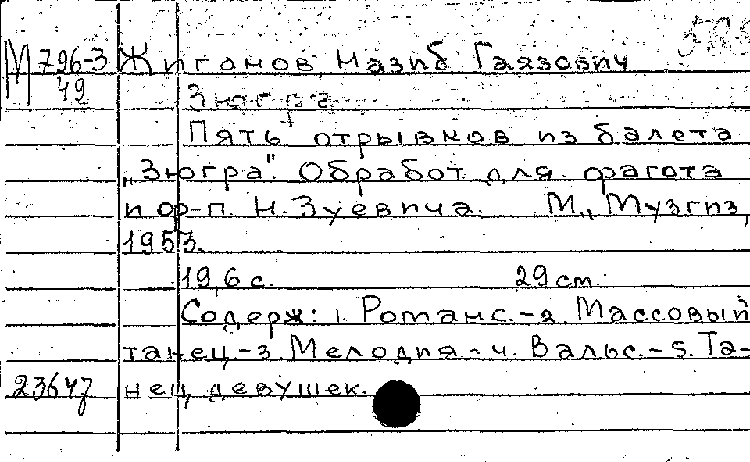 М 796-3 Жиганов, Назиб Гаязович
49 Зюгра
Пять отрывков из балета
„Зюгра". Обработ. для фагота
и ф-п. Н. Зуевича. М., Музгиз,
1953.
19, 6 с. 29 см.
Содерж: 1. Романс.-2. Массовый
танец.-3. Мелодия.-4. Вальс.-5. Та-
23647 нец девушек.